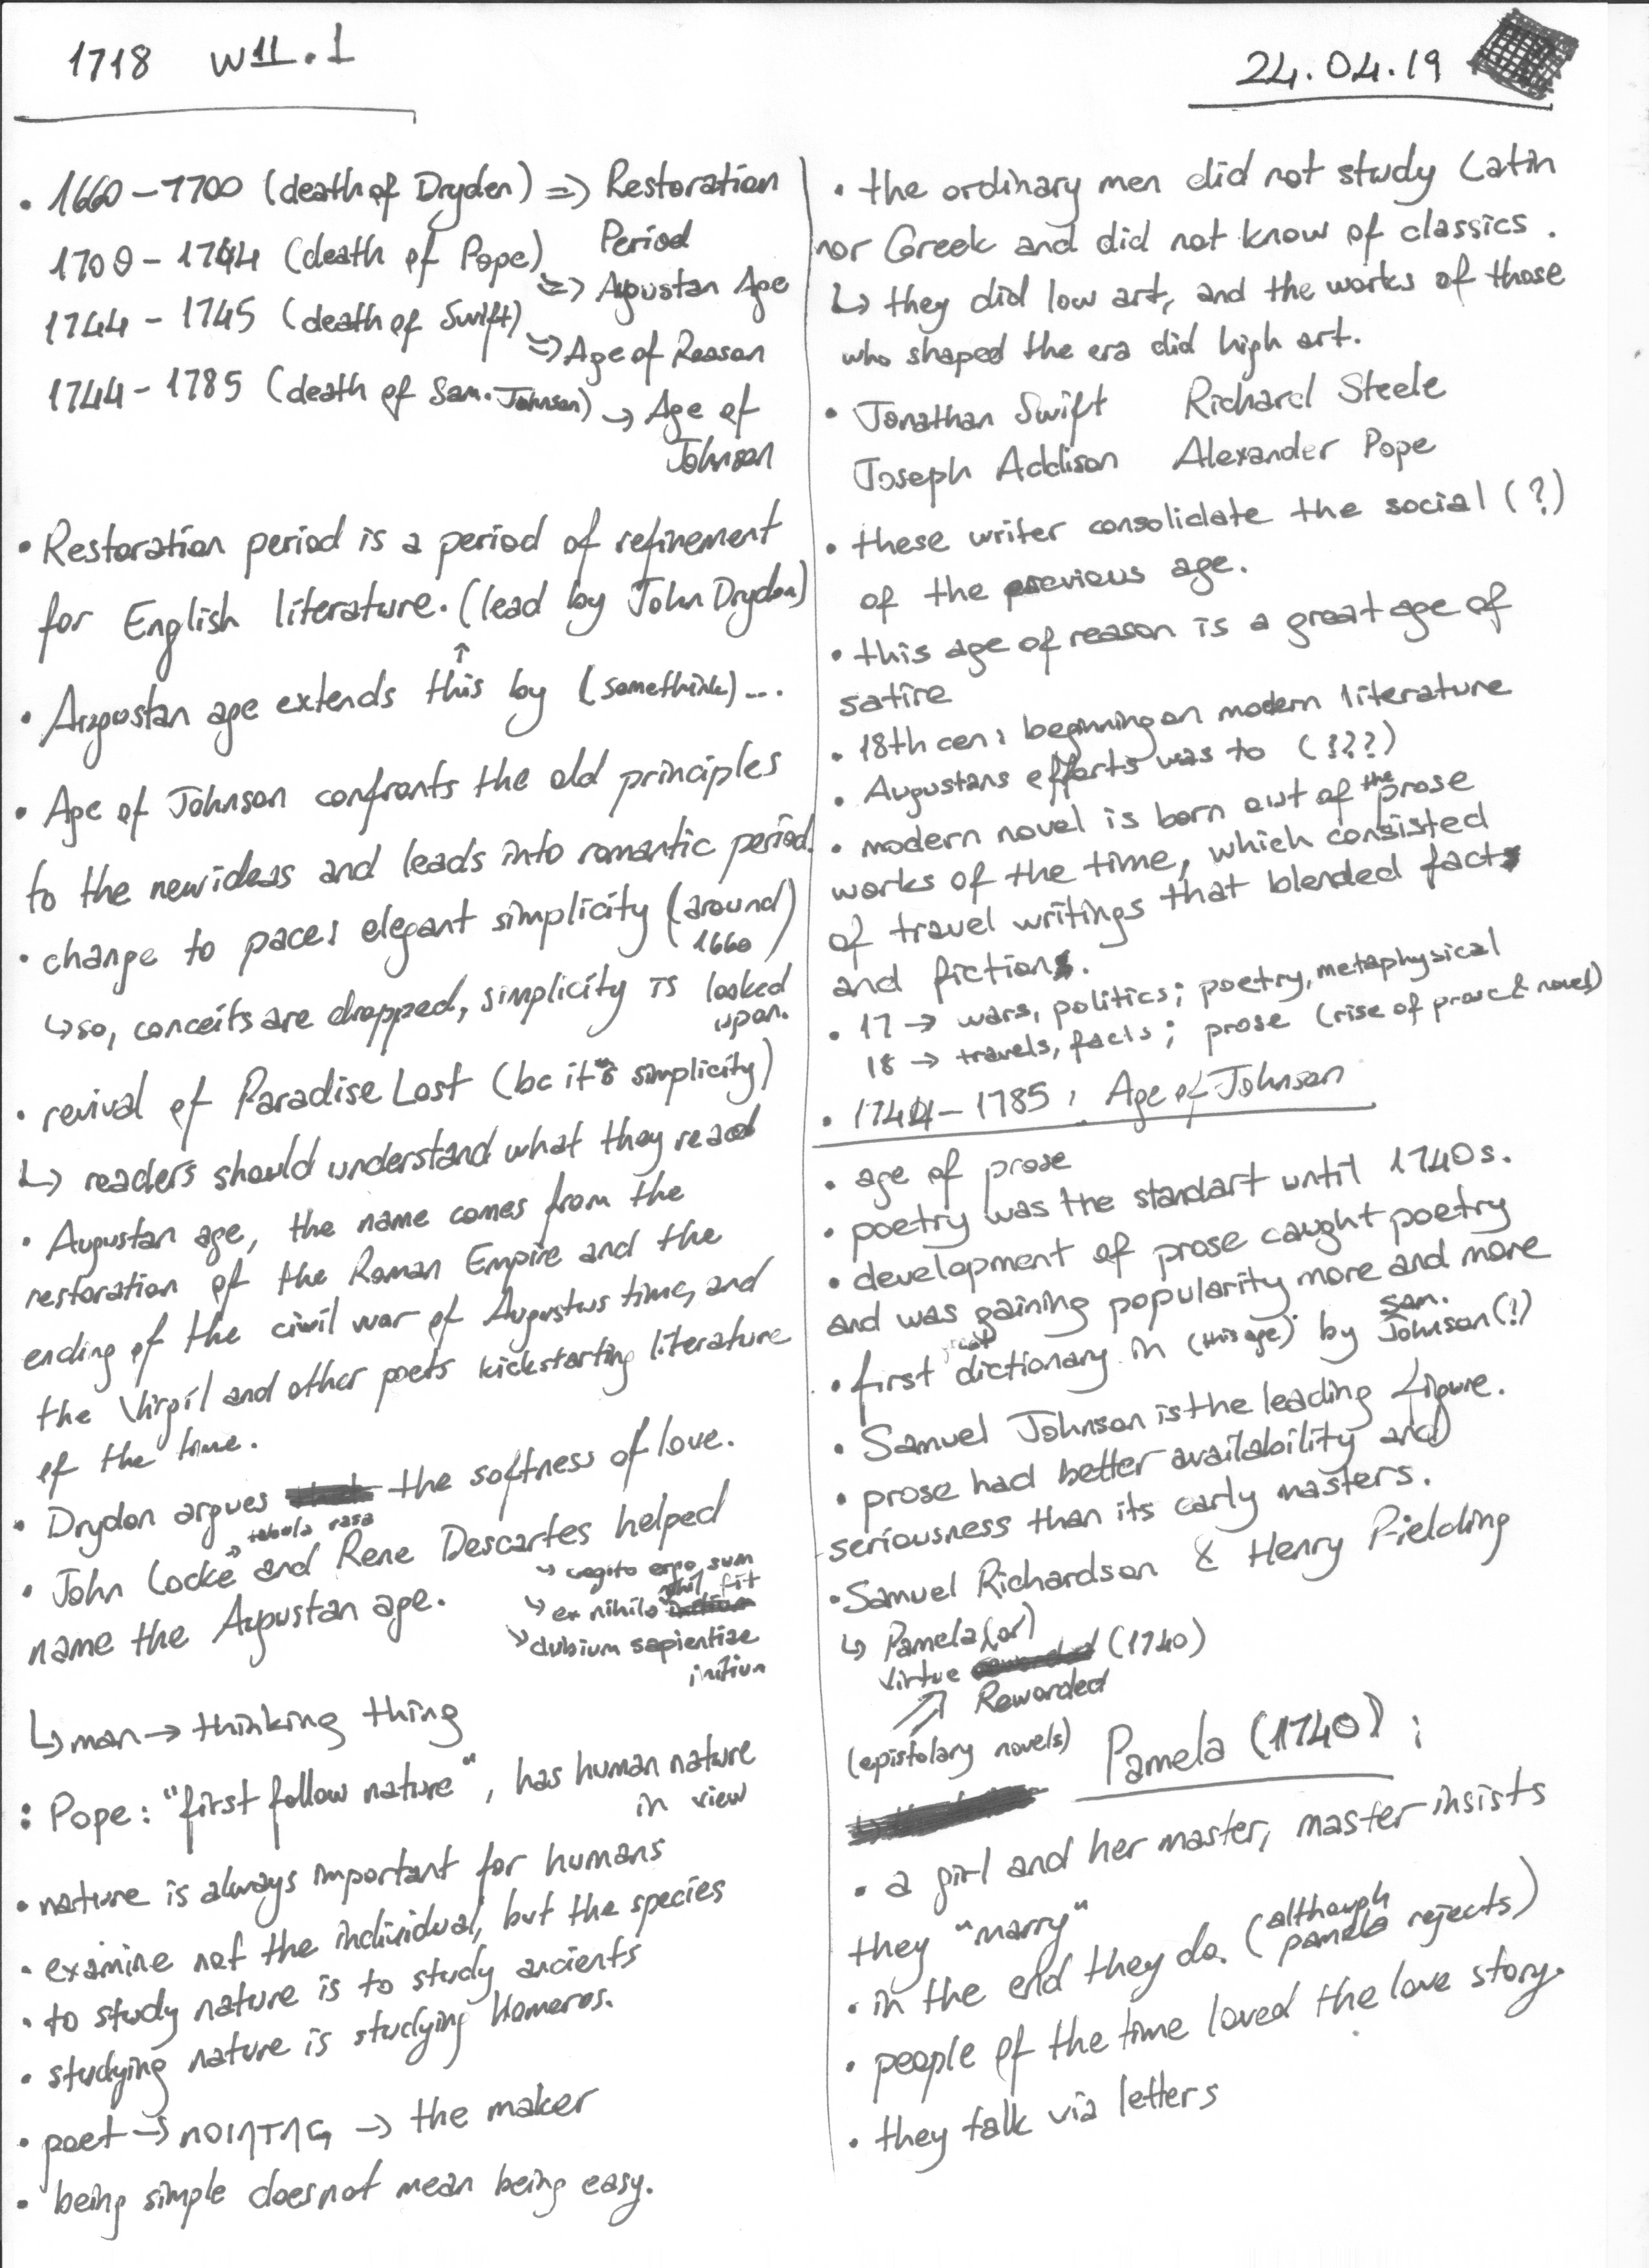 1718 W11.1
24.04.19
• 1660-1700 (death of Dryden) => Restoration
Period
1700-1744 (death of Pope) => Augustan Age
1744-1745 (death of Swift) => Age of Reason
1744-1785 (death of Sam. Johnson) → Age of
Johnson
• Restoration period is a period of refinement
for English literature. (lead by John Dryden)
↑
• Augustan age extends this by (somethink)...
• Age of Johnson confronts the old principles
to the new ideas and leads into romantic period.
• change to pace: elegant simplicity (around
1660)
↳ so, conceits are dropped, simplicity is looked
upon.
• revival of Paradise Lost (bc it's simplicity)
↳ readers should understand what they read
• Augustan age, the name comes from the
restoration of the Roman Empire and the
ending of the civil war of Augustus time, and
the Virgil and other poets kickstarting literature
of the time.
• Drydon argues the softness of love.
→ tabula rasa
• John Locke and Rene Descartes helped
name the Augustan age.
↳ cogito ergo sum
↳ ex nihilo nihil fit
↳ dubium sapientiae
initium
↳ man → thinking thing
: Pope: "first follow nature", has human nature
in view
• nature is always important for humans
• examine not the individual, but the species
• to study nature is to study ancients
• studying nature is studying Homeros.
• poet → → the maker
• being simple does not mean being easy.
• the ordinary men did not study Latin
nor Greek and did not know of classics.
↳ they did low art, and the works of those
who shaped the era did high art.
• Jonathan Swift Richard Steele
Joseph Addison Alexander Pope
• these writer consolidate the social (?)
of the previous age.
• this age of reason is a great age of
satire
• 18th cen: beginning on modern literature
• Augustans efforts was to (???)
• modern novel is born out of the prose
works of the time, which consisted
of travel writings that blended fact
and fiction.
• 17 → wars, politics; poetry, metaphysical
18 → travels, facts; prose (rise of prose & novel)
• 1744-1785: Age of Johnson
• age of prose
• poetry was the standart until 1740s.
• development of prose caught poetry
and was gaining popularity more and more
• first dictionary in (this age) by Sam. Johnson (?)
• Samuel Johnson is the leading figure.
• prose had better availability and
seriousness than its early masters.
• Samuel Richardson & Henry Fielding
↳ Pamela (or)
Virtue Rewarded (1740)
(epistolary novels)
Pamela (1740):
• a girl and her master, master insists
they "marry"
• in the end they do. (although pamela rejects)
• people of the time loved the love story.
• they talk via letters